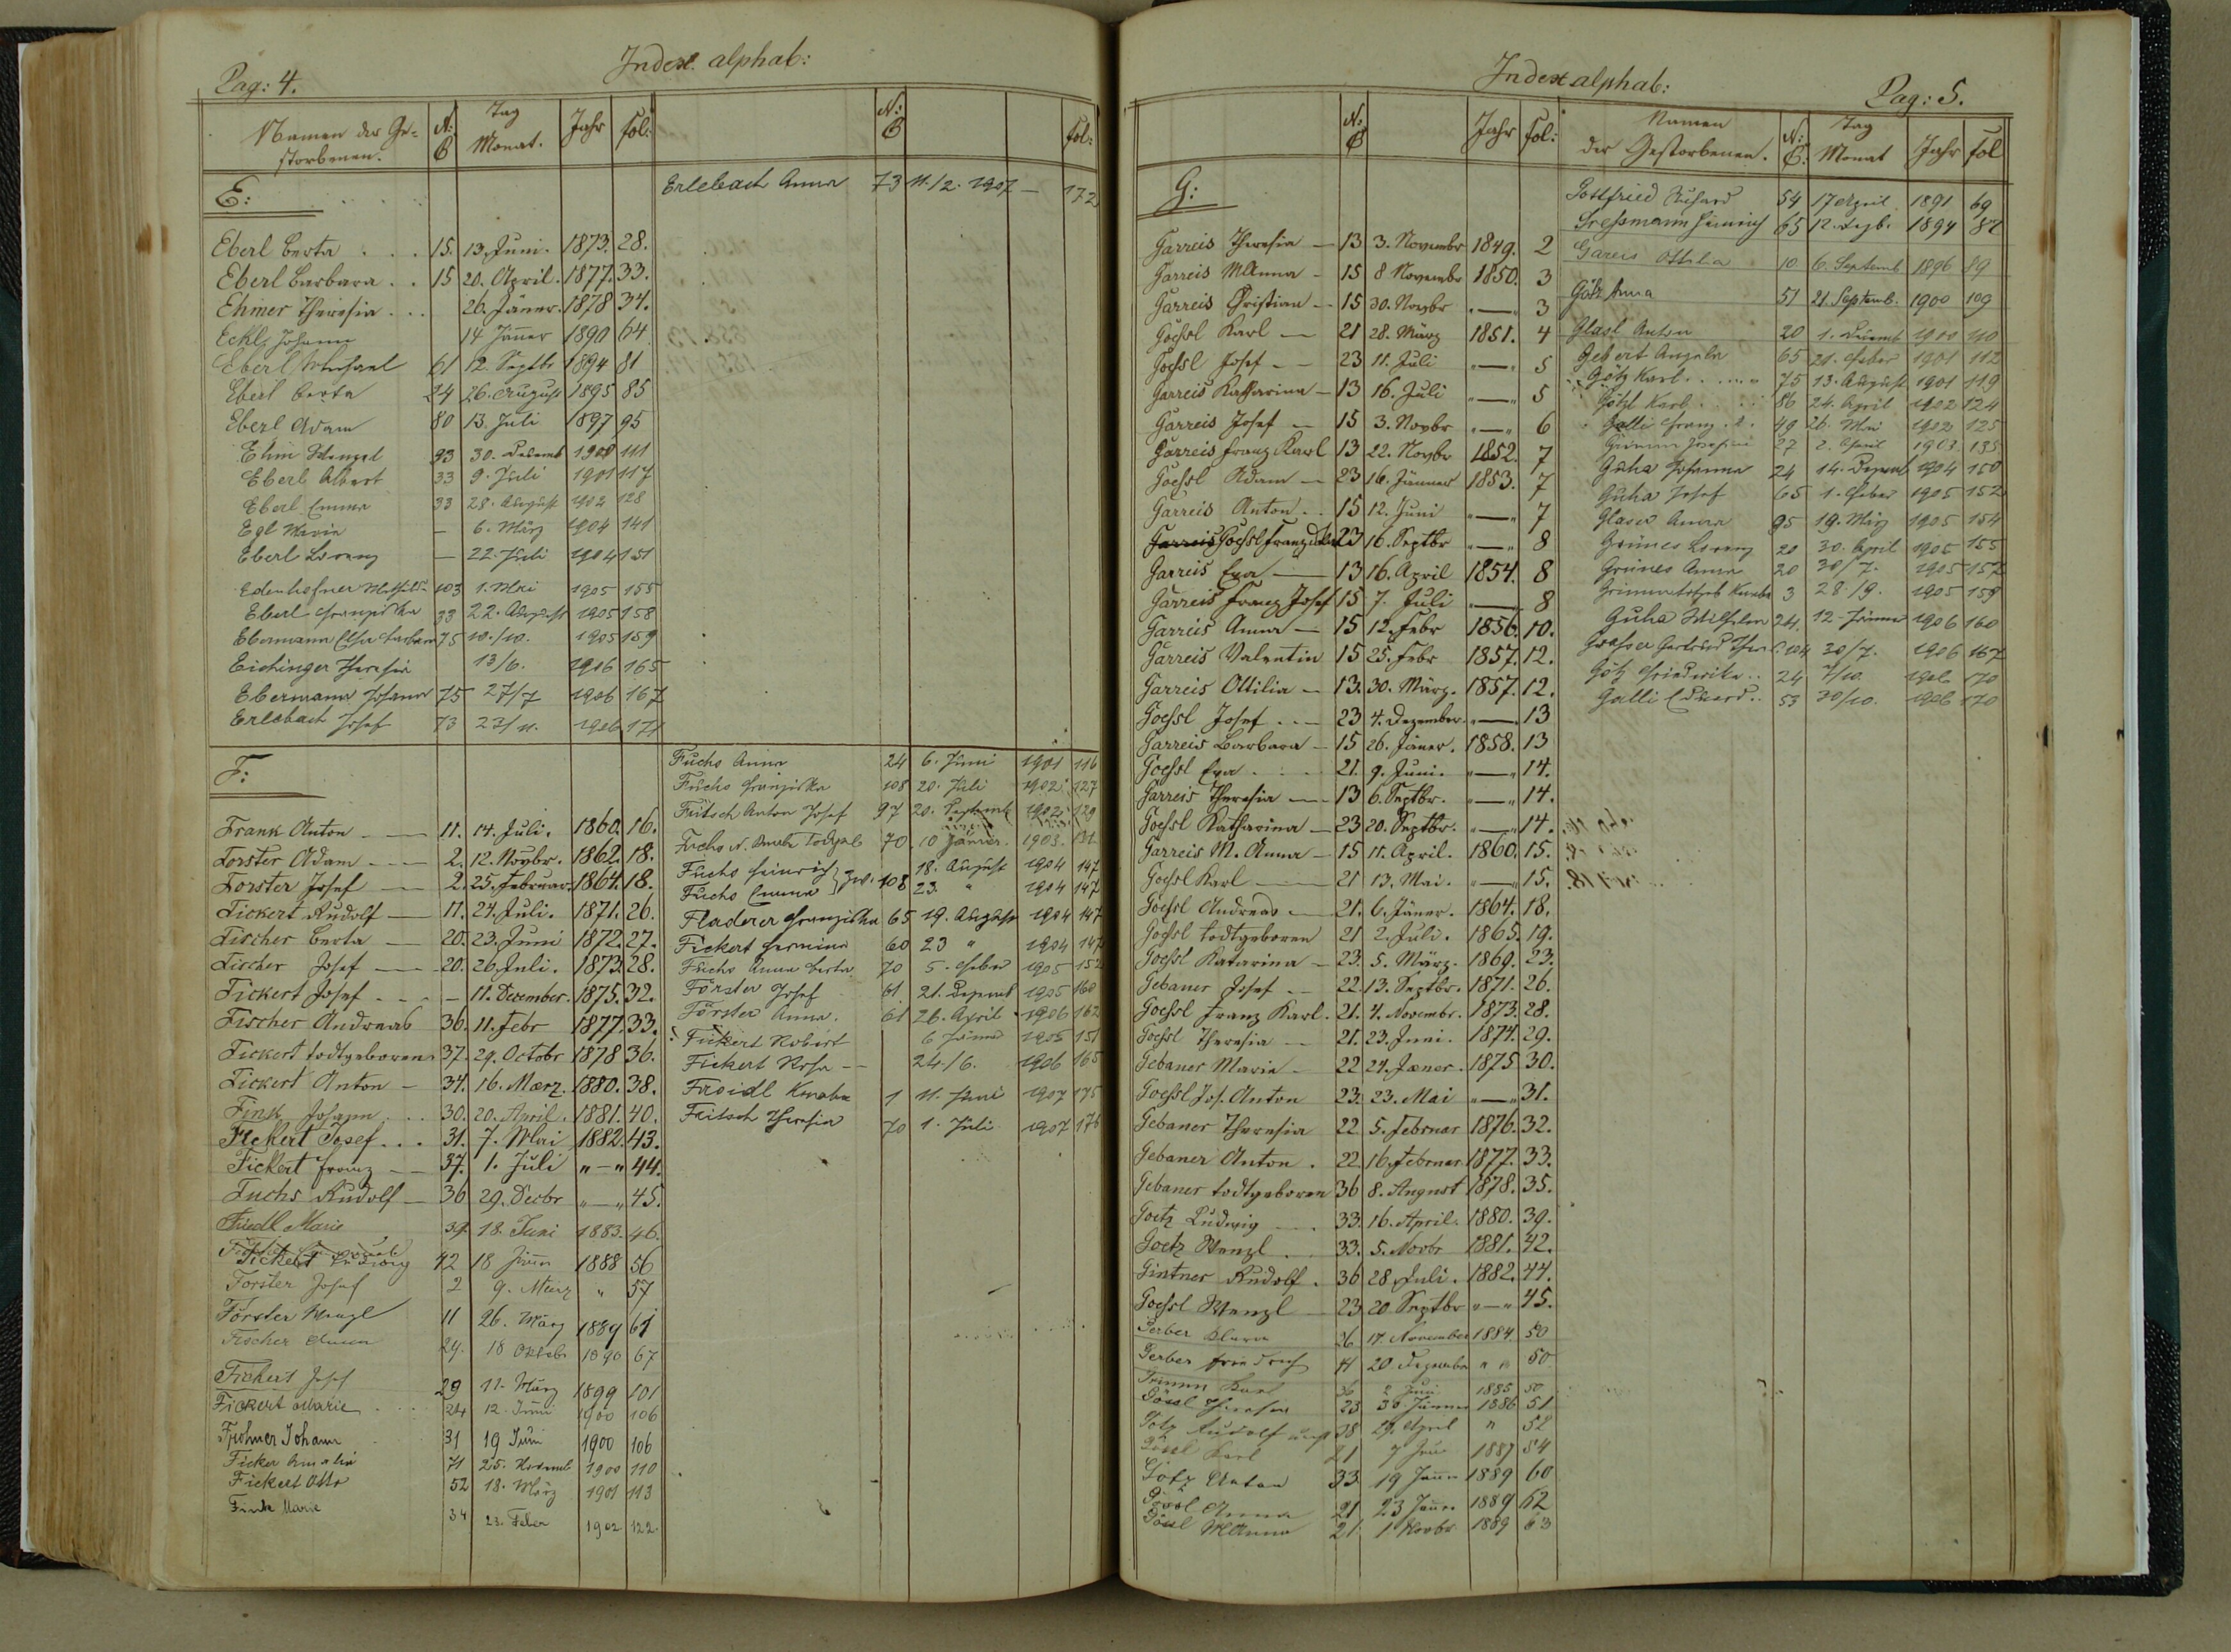 Pag: 4.
Index alphab:
Namen der Ge-
storbenen.
N:
C
Tag
Monat.
Jahr
fol:
N:
C
fol:
E:
Eberl Berta . . . 15. 13. Juni. 1873. 28.
Eberl Barbara . . 15 20. April. 1877. 33.
Ehmer Theresia . . . 26. Jäner. 1878 34.
Eckl, Johann 14 Jäner 1890 64
Eberl Michael 61 12. Septbr 1894 81
Eberl Berta 24 26. August 1895 85
Eberl Adam 80 13. Juli 1897 95
Ehm Wenzel 93 30. Decemb 1900 111
Eberl Albert 33 9. Juli 1901 117
Eberl Emma 33 28. August 1902 128
Egl Maria — 6. März 1904 141
Eberl Lorenz — 22. Juli 1904 151
Edenhofner Mathild. 103 1. Mai 1905 155
Eberl Franziska 33 22. August 1905 158
Ebermann Elsa Barbara 75 10./10. 1905 159
Eichinger Theresia 13/6. 1906 165
Ebermann Johann 75 27/7 1906 167
Erlebach Josef 73 23/11. 1906 171
Erlebach Anna 73 11./2. 1907 — 172
F:
Frank Anton — 11. 14. Juli. 1860. 16.
Forster Adam — 2. 12. Novbr. 1862. 18.
Forster Josef — 2. 25. Februar. 1864. 18.
Fickert Rudolf — 11. 24. Juli. 1871. 26.
Fischer Berta — 20. 23. Juni 1872. 27.
Fischer Josef — 20. 26. Juli. 1873. 28.
Fickert Josef . . . — 11. Dezember. 1875. 32.
Fischer Andreas 36. 11. Febr 1877. 33.
Fickert todtgeboren 37. 29. Octobr 1878 36.
Fickert Anton — 34. 16. Mærz. 1880. 38.
Fink Johann . . . 30. 20. April. 1881. 40.
Fickert Josef . . . 31. 7. Mai 1882. 43.
Fickert Franz — 37. 1. Juli " — " 44.
Fuchs Rudolf — 36 29. Decbr " — " 45.
Friedl Marie 39. 18. Juni 1883. 46.
Fickert Ludwig 42 18 Jänn 1888 56
Forster Josef 2 9. März " 57
Forster Wenzl 11 26. März 1889 61
Fischer Anna 29. 18 Oktob 1890 67
Fickert Josef 29 11. März 1899 101
Fickert Marie 24 12. Juni 1900 106
Frohner Johann 31 19 Juni 1900 106
Ficker Amalia 71 25. Novemb 1900 110
Fickert Otto 52 18. März 1901 113
Fink Marie 34 23. Feber 1902 122.
Fuchs Anna 24 6. Juni 1901 116
Fuchs Franziska 108 20. Juli 1902 127
Fritsch Anton Josef 97 20. Septemb 1902 129
Fuchs N. Knabe todtgeb 70 10 Jänner. 1903. 131
Fuchs Heinrich } Zw. 108 18. August 1904 147
Fuchs Emma 23. " 1904 147
Fladerer Franziska 65 19. August 1904 147
Fickert Hermine 60 23 " 1904 147
Fuchs Anna Berta 70 5. Feber 1905 152
Förster Josef 61 21. Dezemb 1905 160
Förster Anna. 61 26. April 1906 162
Fickert Robert 6 Jänner 1905 151
Fickert Rosa — 24./6. 1906 165
Froidl Knabe 1 11. Juni 1907 175
Fritsch Theresia 70 1. Juli 1907 176
Index alphab:
Pag: 5.
N:
C
Jahr
fol:
Namen
der Gestorbenen.
N:
C.
Tag
Monat
Jahr
fol
G:
Garreis Theresia — 13 3. Novembr 1849. 2
Garreis M Anna — 15 8 Novembr 1850. 3
Garreis Christian — 15 30. Novbr " — " 3
Goessl Karl — 21 28. März 1851. 4
Goessl Josef — 23 11. Juli " — " 5
Garreis Katharina — 13 16. Juli " — " 5
Garreis Josef — 15 3. Novbr " — " 6
Garreis Franz Karl 13 22. Novbr 1852. 7
Goessl Adam — 23 16. Jänner 1853. 7
Garreis Anton . . 15 12. Juni " — " 7
Garreis Goessl Franziska 23 16. Septbr " — " 8
Garreis Eva — 13 16. April 1854. 8
Garreis Franz Josef 15 7. Juli " — " 8
Garreis Anna — 15 12. Febr 1856. 10.
Garreis Valentin 15 25. Febr 1857. 12.
Garreis Ottilia — 13. 30. März. 1857. 12.
Goessl Josef . . — 23 4. Dezember. " — " 13
Garreis Barbara — 15 26. Jäner. 1858. 13
Goessl Eva . . . 21. 9. Juni. " — " 14.
Garreis Theresia — 13 6. Septbr. " — " 14.
Goessl Katharina — 23 20. Septbr. " — " 14.
Garreis M. Anna — 15 11. April. 1860. 15.
Goessl Karl — 21 13. Mai. " — " 15.
Goessl Andreas — 21. 6. Jäner. 1864. 18.
Goessl todtgeboren 21 2. Juli. 1865. 19.
Goessl Katarina — 23. 5. März. 1869. 23.
Gebauer Josef . — 22. 13. Septbr. 1871. 26.
Goessl Franz Karl. 21. 4. Novembr. 1873. 28.
Goessl Theresia — 21. 23. Juni. 1874. 29.
Gebauer Maria — 22 24. Jæner. 1875 30.
Goessl Jos. Anton 23. 23. Mai " — " 31.
Gebauer Theresia 22 5. Februar 1876. 32.
Gebauer Anton . 22. 16. Februar 1877. 33.
Gebauer todtgeboren 36 8. August 1878. 35.
Goetz Ludwig . . . 33. 16. April. 1880. 39.
Goetz Wenzl . . 33. 5. Novbr 1881. 42.
Gintner Rudolf . 36 28. Juli. 1882. 44.
Goessl Wenzl — 23 20 Septbr " — " 45.
Gerber Klara 26 17. November 1884. 50
Gerber Friedrich 41 20 Dezember " " 50
Grimm Karl 36 2 Juni 1885 50
Gössl Theresia 23 30 Jänner 1886 51
Götz Rudolf 38 29. April " 52
Gössl Karl 21 7 1887 54
Götz Anton 33 19 Jänn 1889 60
Gössl Anna 21 23 Jänn. 1889 62
Gössl M Anna 21. 1 Novbr 1889 63
Gottfried Richard 54 17 April 1891 69
Gressmann Heinrich 65 12. Dezb. 1894 82
Gareis Ottilia 10 6. Septemb 1896 89
Götz Anna 51 21. Septemb. 1900 109
Glasl Anton 20 1. Decemb 1900 110
Gebert Angela 65 21. Feber 1901 112
Götz Karl . . . . . 75 13. August 1901 119
Gößl Karl . . . 86 24. April 1902 124
Galli Franz . . 49 26. Mai 1902 125
Grimm Josefine 27 2. April 1903. 135
Guha Johanna 24 14. Dezemb 1904 150
Guha Josef 65 1. Feber 1905 152
Glaser Anna 95 19. März 1905 154
Grünes Lorenz 20 30. April 1905 155
Grünes Anna 20 30/7. 1905 157
Grimm todtgeb Knabe 3 28./9. 1905 159
Guha Wilhelm 24. 12. Jänner 1906 160
Grasser Gertrud Ther. 104 30/7. 1906 167
Götz Friederike . . 24 4/10. 1906 170
Galli Eduard . . 53 30/10. 1906 170